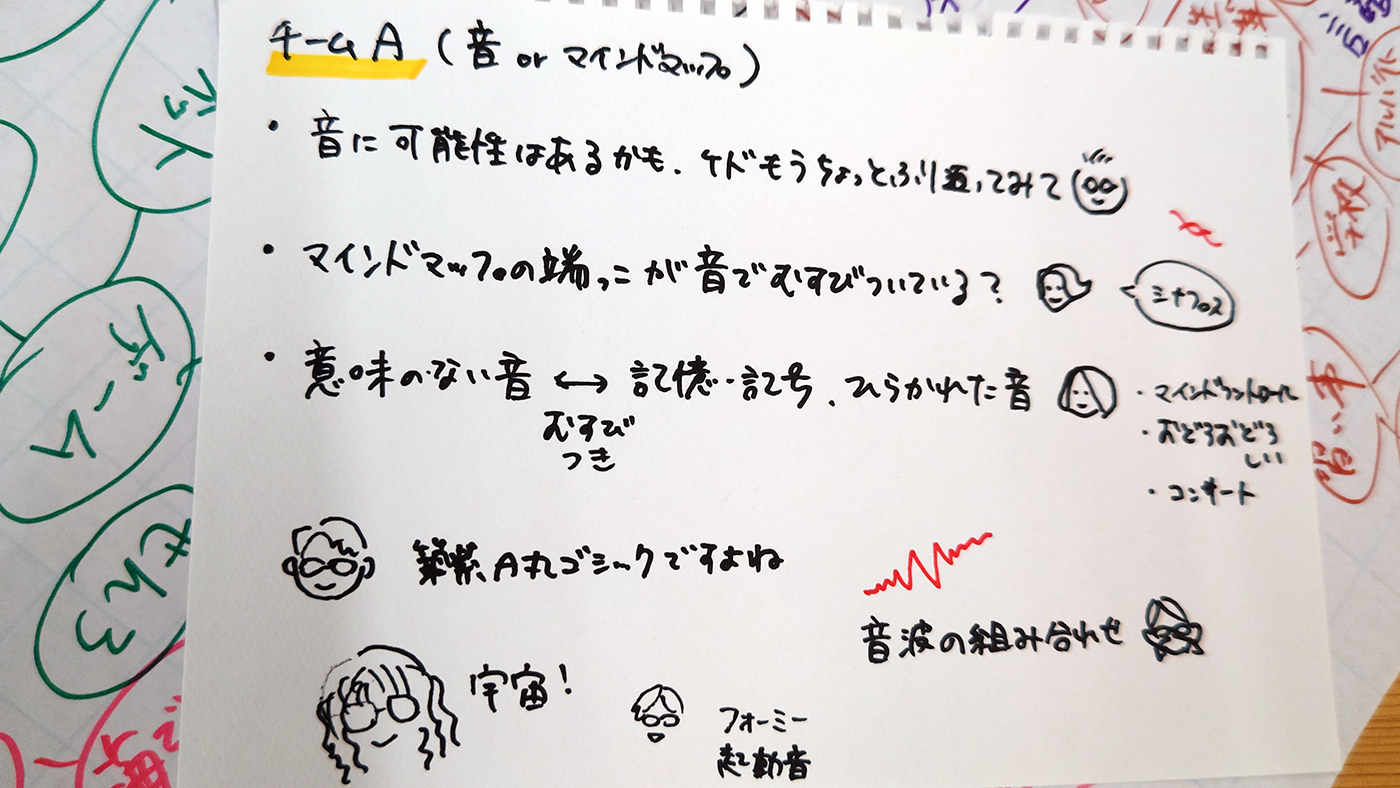 チームA (音 or マインドマップ)
・音に可能性はあるかも、ケドもうちょっとふり返ってみて
・マインドマップの端っこが音でむすびついている?
シナプス
・意味のない音 ↔ 記憶・記号、ひらかれた音
むすび
つき
・マインドコントロール
・おどろおどろ
しい
・コンサート
筑紫A丸ゴシックですよね
音波の組み合わせ
宇宙!
フォーミー
起動音
ゲーム